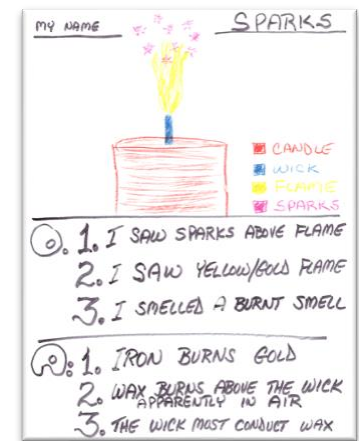 MY NAME
SPARKS
CANDLE
WICK
FLAME
SPARKS
O. 1. I SAW SPARKS ABOVE FLAME
2. I SAW YELLOW/GOLD FLAME
3. I SMELLED A BURNT SMELL
R: 1. IRON BURNS GOLD
2. WAX BURNS ABOVE THE WICK
APPARENTLY IN AIR
3. THE WICK MUST CONDUCT WAX